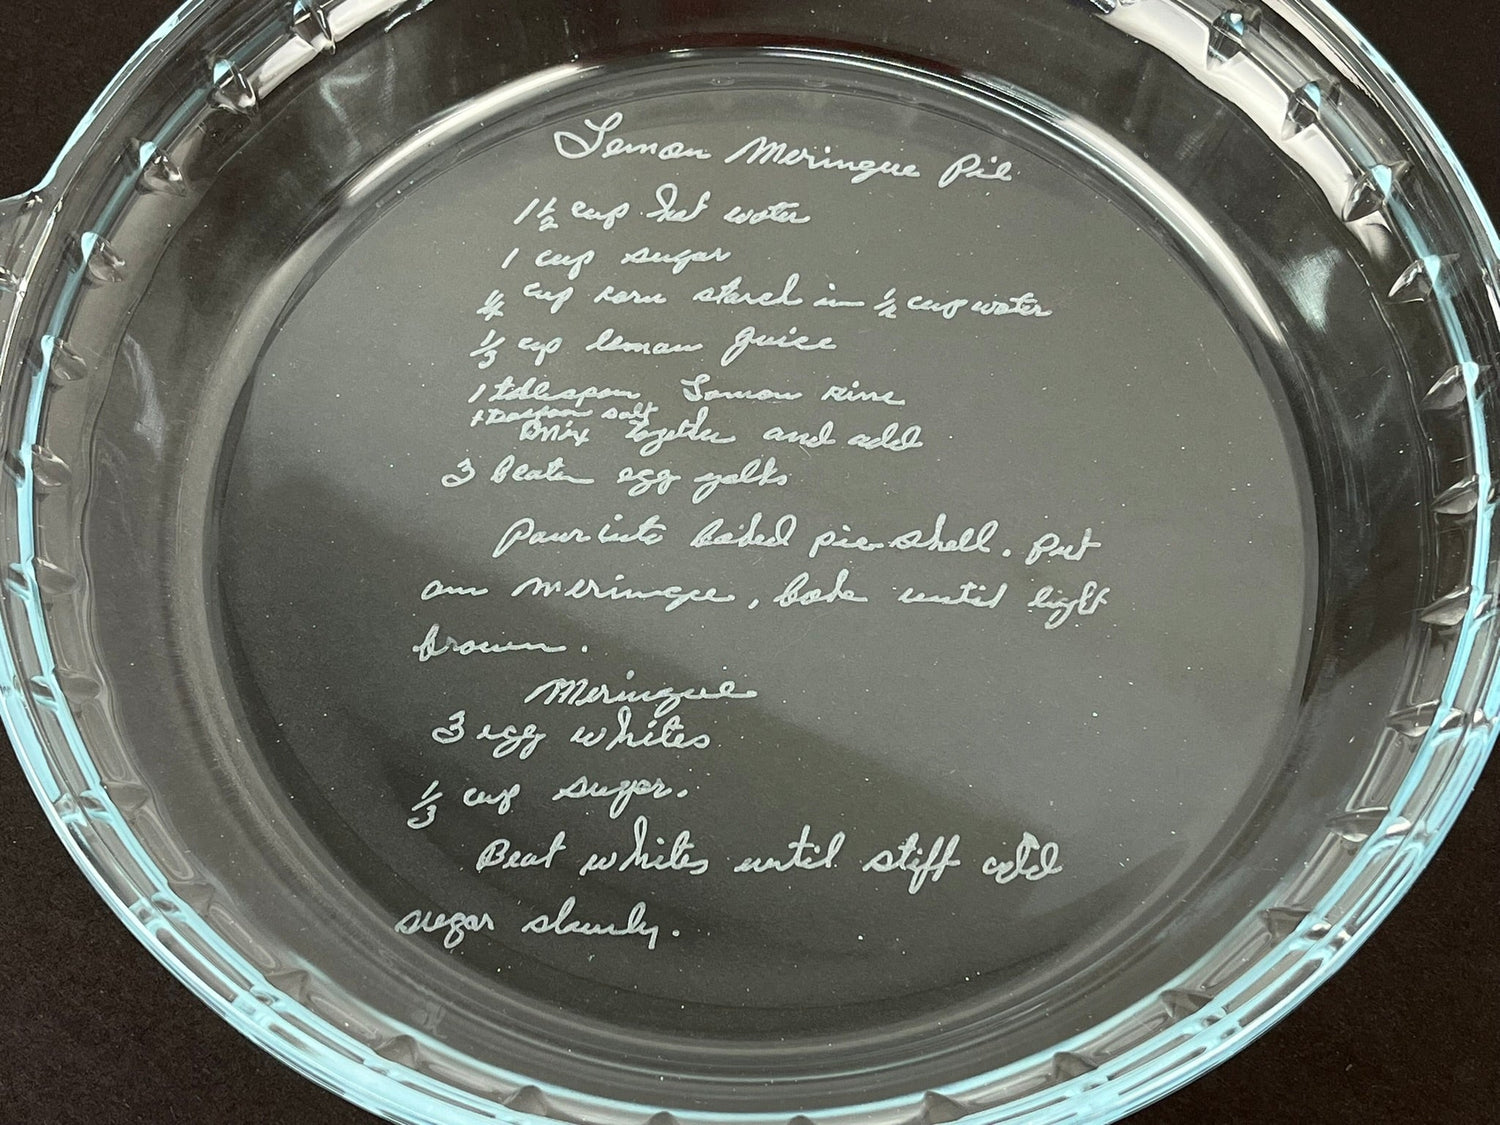 Lemon Meringue Pie
1 1/2 cup hot water
1 cup sugar
1/4 cup corn starch in 1/2 cup water
1/3 cup lemon juice
1 tablespoon Lemon rine
1 teaspoon salt
mix together and add
3 beaten egg yolks
Pour into baked pie shell. Put
on meringue, bake until light
brown.
Meringue
3 egg whites
1/3 cup sugar.
Beat whites until stiff add
sugar slowly.